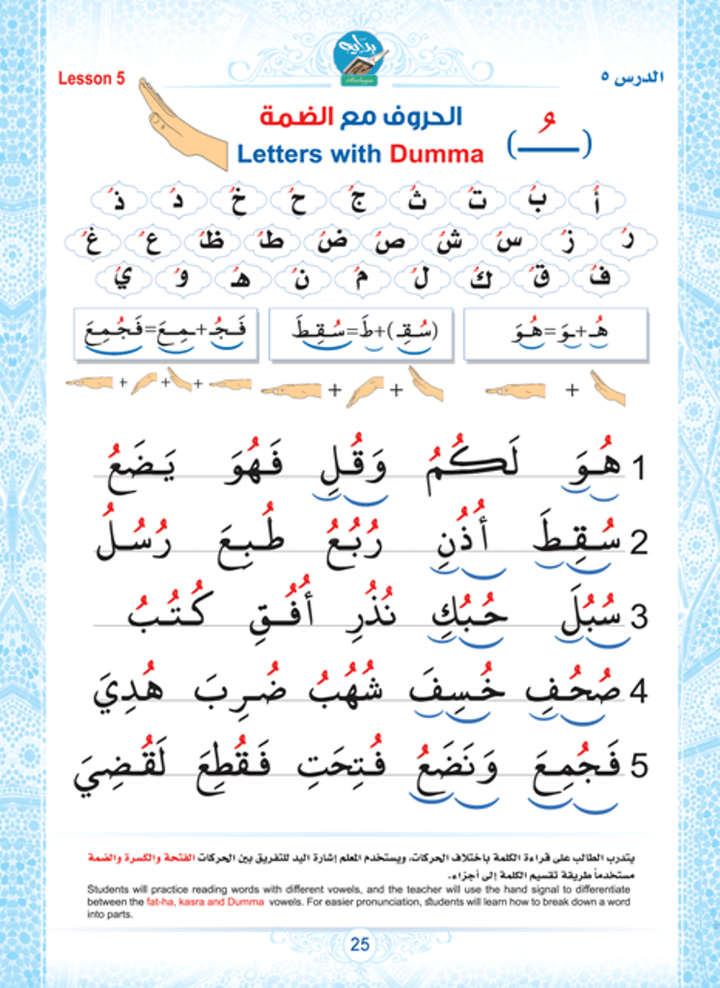 Lesson 5
الدرس ٥
بداية
الحروف مع الضمة
( ـُ )
Letters with Dumma
أُ بُ تُ ثُ جُ حُ خُ دُ ذُ
رُ زُ سُ شُ صُ ضُ طُ ظُ عُ غُ
فُ قُ كُ لُ مُ نُ هُـ وُ يُ
هُـ+ـوَ=هُـوَ (سُـقِـ)+طَ=سُـقِـطَ فَـجُـ+ـمِـعَ=فَجُـمِـعَ
+ + + + + +
1 هُـوَ لَـكُـمُ وَقُـلِ فَـهُـوَ يَـضَـعُ
2 سُـقِـطَ أُذُنِ رُبُـعُ طُـبِـعَ رُسُـلُ
3 سُـبُـلَ حُـبُـكِ نُـذُرِ أُفُـقِ كُـتُـبُ
4 صُحُـفِ خُـسِـفَ شُهُـبُ ضُـرِبَ هُـدِيَ
5 فَـجُـمِـعَ وَنَـضَـعُ فُـتِـحَـتِ فَـقُـطِـعَ لَـقُـضِـيَ
يتدرب الطالب على قراءة الكلمة باختلاف الحركات، ويستخدم المعلم إشارة اليد للتفريق بين الحركات الفتحة والكسرة والضمة
مستخدماً طريقة تقسيم الكلمة إلى أجزاء.
Students will practice reading words with different vowels, and the teacher will use the hand signal to differentiate
between the fat-ha, kasra and Dumma vowels. For easier pronunciation, students will learn how to break down a word
into parts.
25